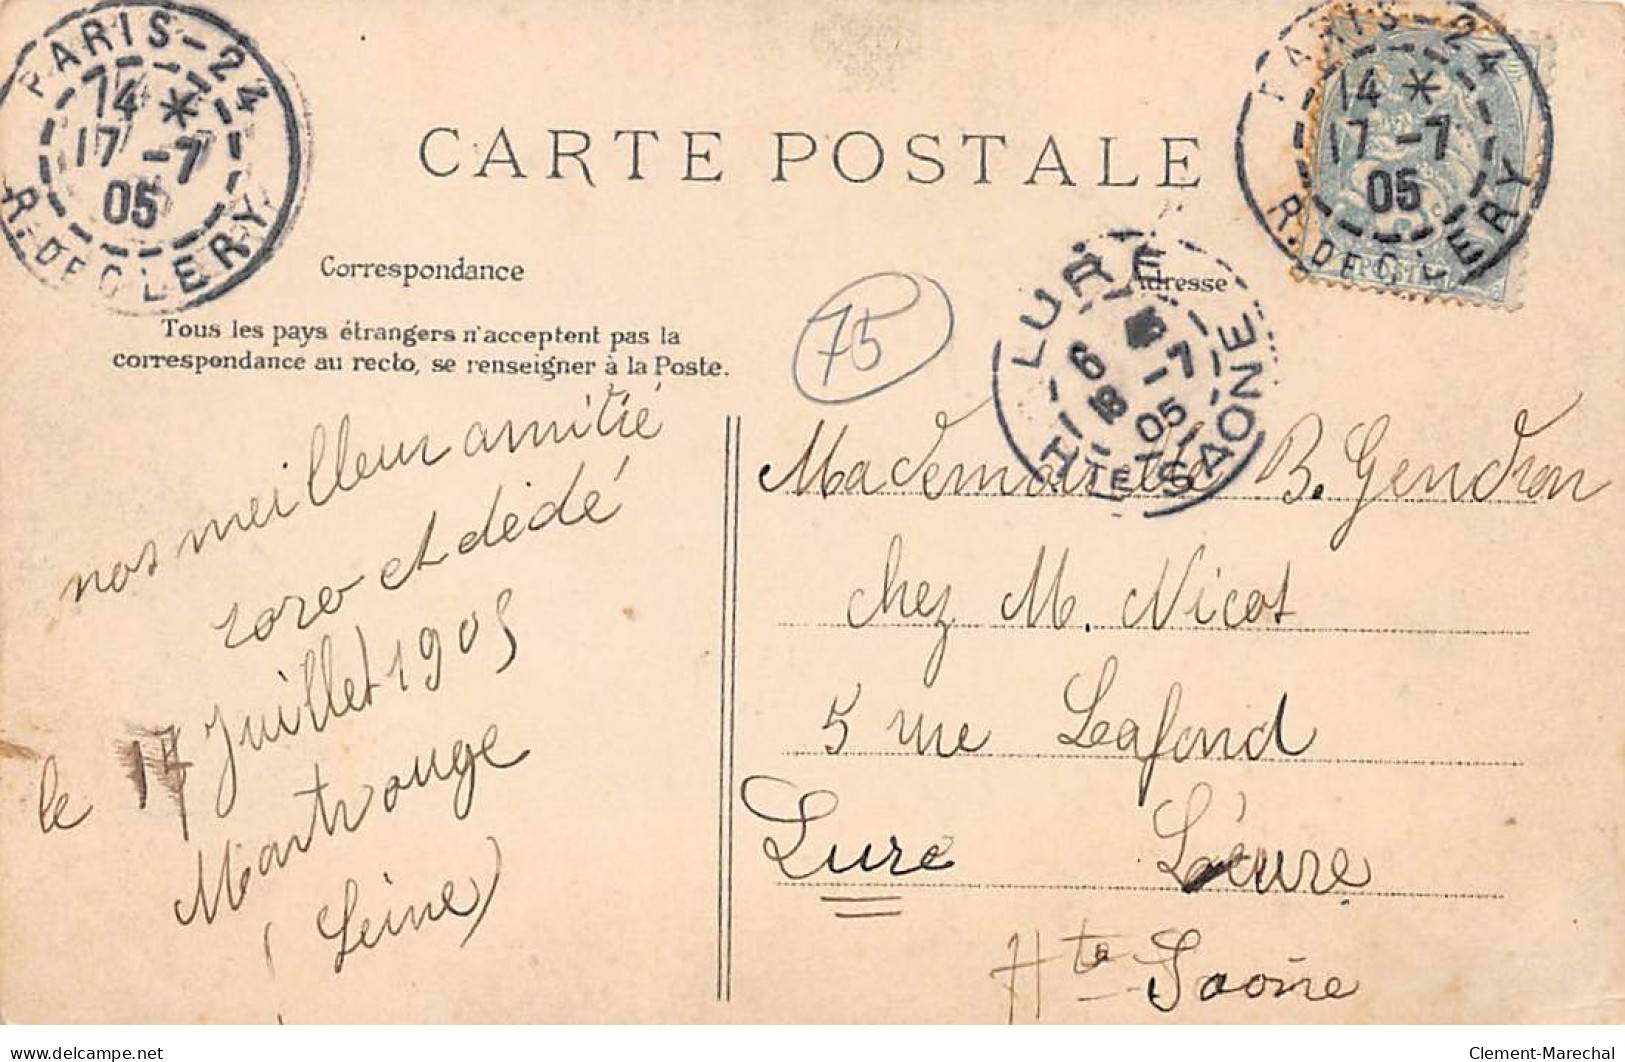 PARIS-24
14 *
17 -7
05
R. DE CLERY
PARIS-24
14 *
17 -7
05
R. DE CLERY
CARTE POSTALE
Correspondance
Adresse
Tous les pays étrangers n'acceptent pas la
correspondance au recto, se renseigner à la Poste.
75
LURE
6
18 -7
05
HTE SAONE
nos meilleur amitié
roro et dédé
le 17 Juillet 1905
Montrouge
(Seine)
Mademoiselle B. Gendron
chez M. Nicot
5 rue Lafond
Lure Léure
Hte Saône
delcampe.net
Clement-Marechal